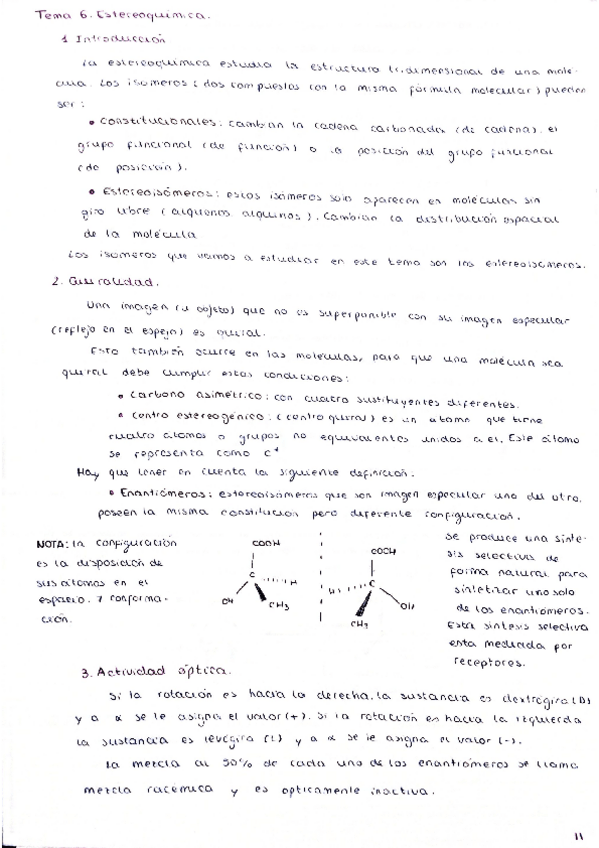 Tema 6. Estereoquímica.
1 Introducción
La estereoquímica estudia la estructura tridimensional de una molé-
cula. Los isómeros (dos compuestos con la misma fórmula molecular) pueden
ser:
• Constitucionales: cambian la cadena carbonada (de cadena), el
grupo funcional (de función) o la posición del grupo funcional
(de posición).
• Estereoisómeros: estos isómeros solo aparecen en moléculas sin
giro libre (alquenos, alquinos). Cambian la distribución espacial
de la molécula
Los isómeros que vamos a estudiar en este tema son los estereoisómeros.
2. Quiralidad.
Una imagen (u objeto) que no es superponible con su imagen especular
(reflejo en el espejo) es quiral.
Esto también ocurre en las moléculas, para que una molécula sea
quiral debe cumplir estas condiciones:
• Carbono asimétrico: con cuatro sustituyentes diferentes.
• Centro estereogénico: (centro quiral) es un átomo que tiene
cuatro átomos o grupos no equivalentes unidos a él. Este átomo
se representa como C*
Hay que tener en cuenta la siguiente definición.
• Enantiómeros: estereoisómeros que son imagen especular uno del otro,
poseen la misma constitución pero diferente configuración.
NOTA: la configuración
es la disposición de
sus átomos en el
espacio. 7 conforma-
ción.
COOH
C
H
OH
CH3
COOH
H
C
OH
CH3
se produce una sínte-
sis selectiva de
forma natural para
sintetizar uno solo
de los enantiómeros.
Esta síntesis selectiva
está mediada por
receptores.
3. Actividad óptica.
Si la rotación es hacia la derecha, la sustancia es dextrógira (D)
y a α se le asigna el valor (+). Si la rotación es hacia la izquierda
la sustancia es levógira (L) y a α se le asigna el valor (-).
La mezcla al 50% de cada uno de los enantiómeros se llama
mezcla racémica y es ópticamente inactiva.
11